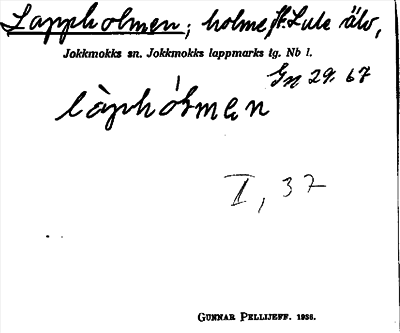 Lappholmen; holme, St. Lule älv,
Jokkmokks sn. Jokkmokks lappmarks tg. Nb l.
Gn 29. 67
làphólmen
I, 37
GUNNAR PELLIJEFF. 1938.